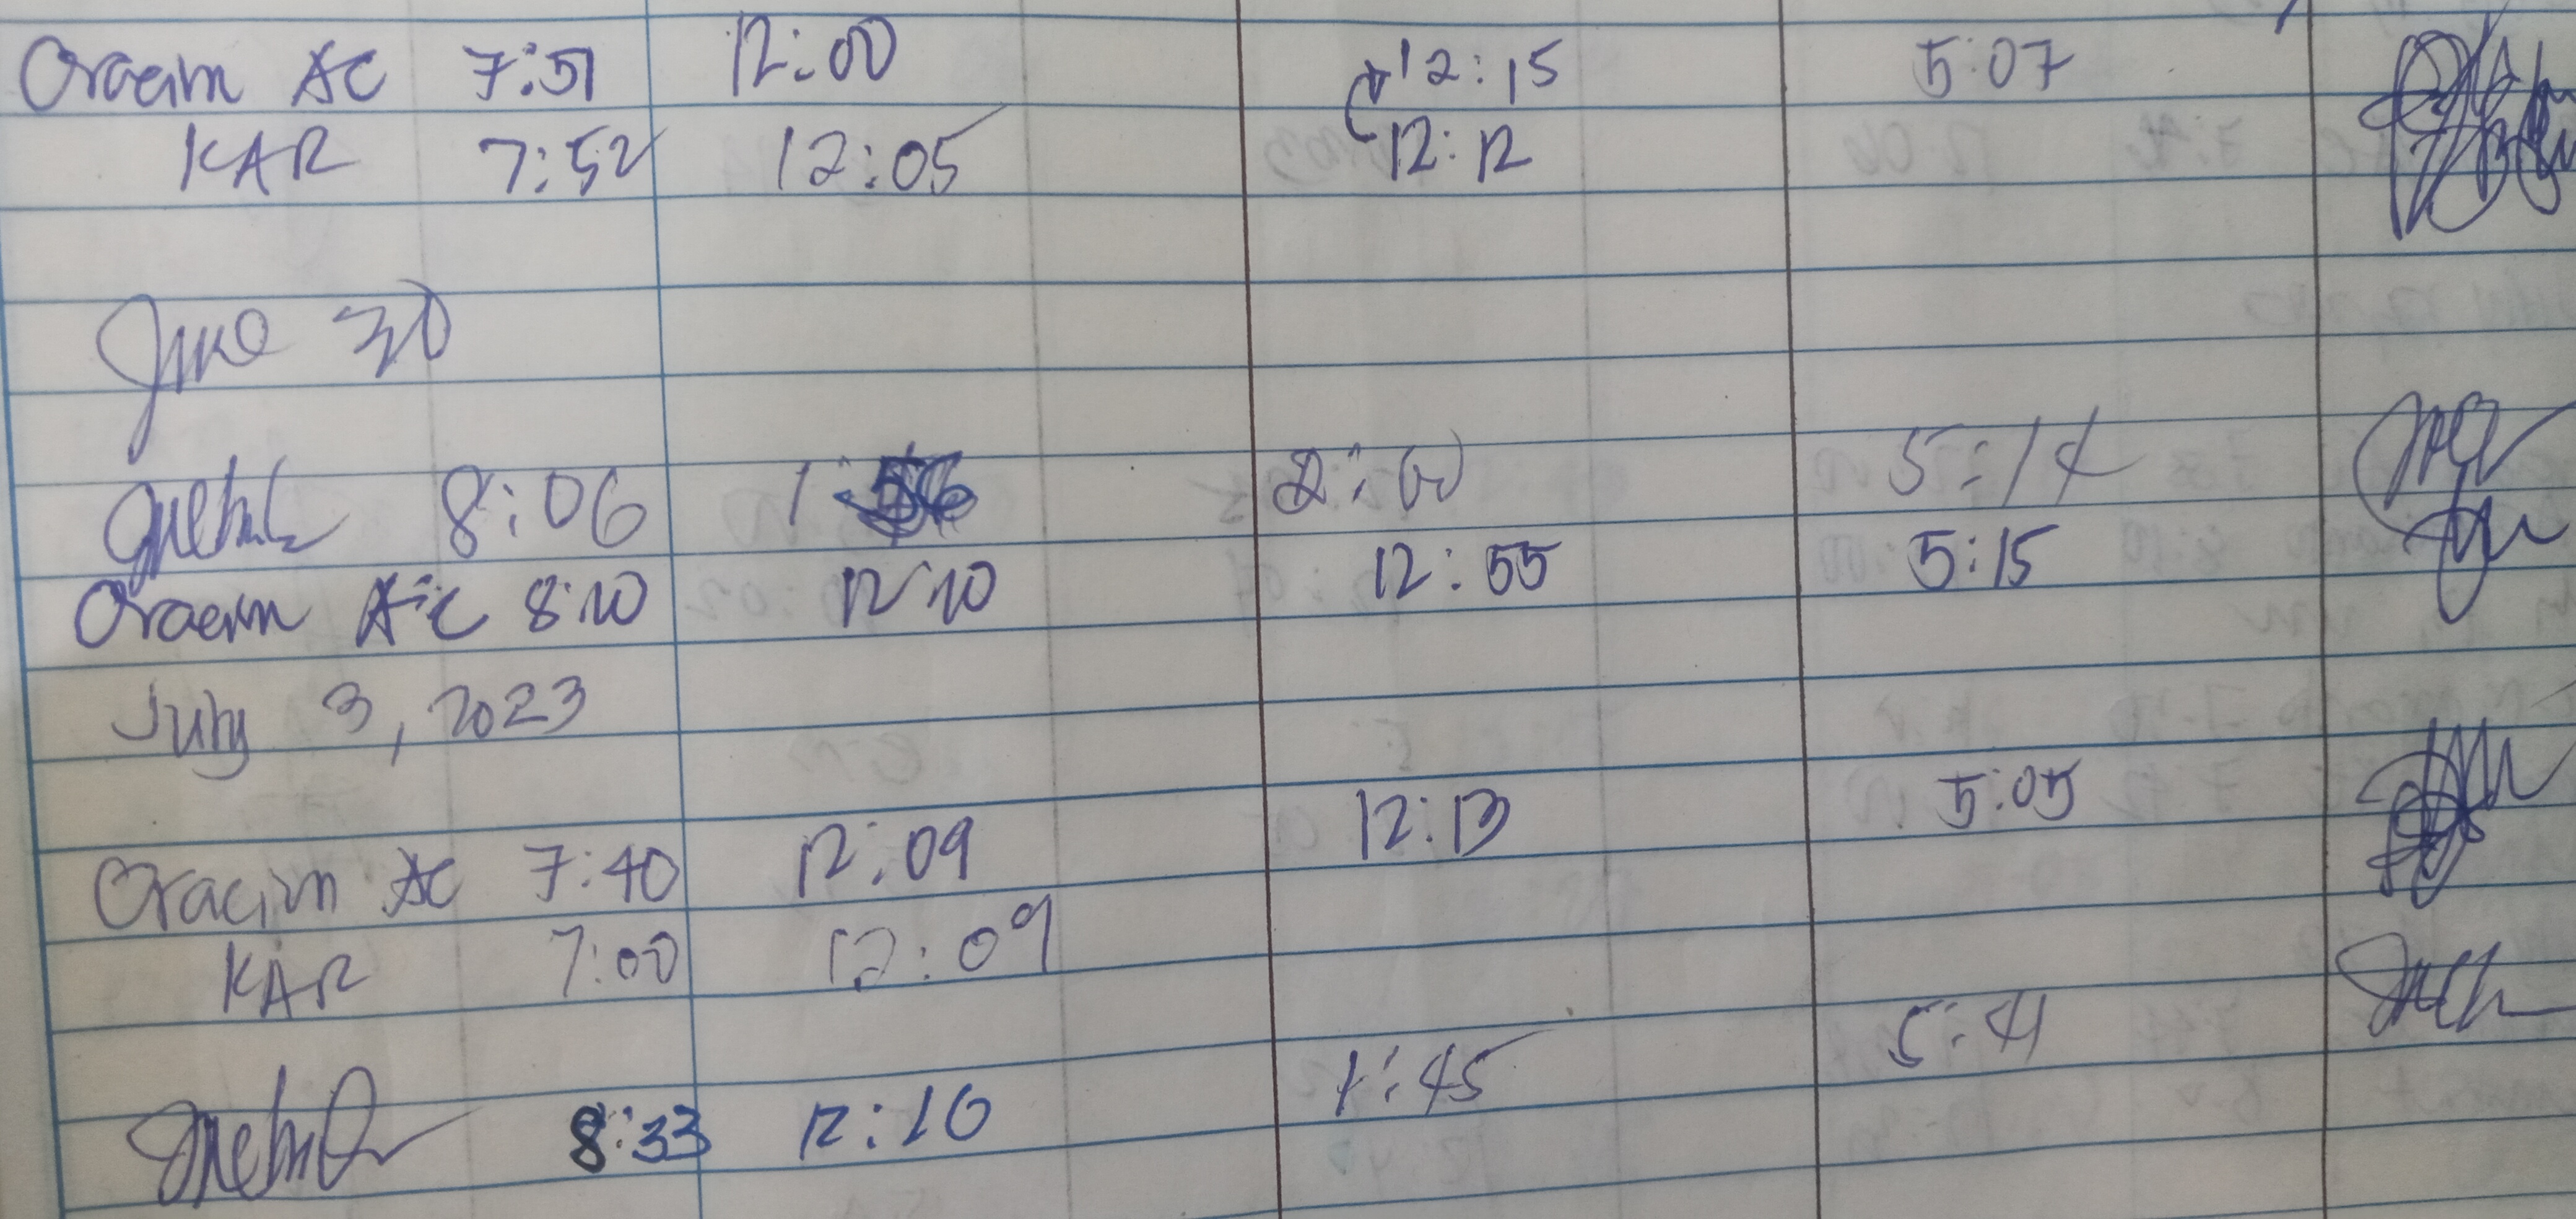 Oracion AC 7:51 12:00 12:15 5:07
KAR 7:52 12:05 12:12
June 30
8:06 1: 2:00 5:14
Oracion A.C 8:10 12:10 12:55 5:15
July 3, 2023
Oracion AC 7:40 12:09 12:13 5:05
KAR 7:00 12:09
8:33 12:10 1:45 5:41